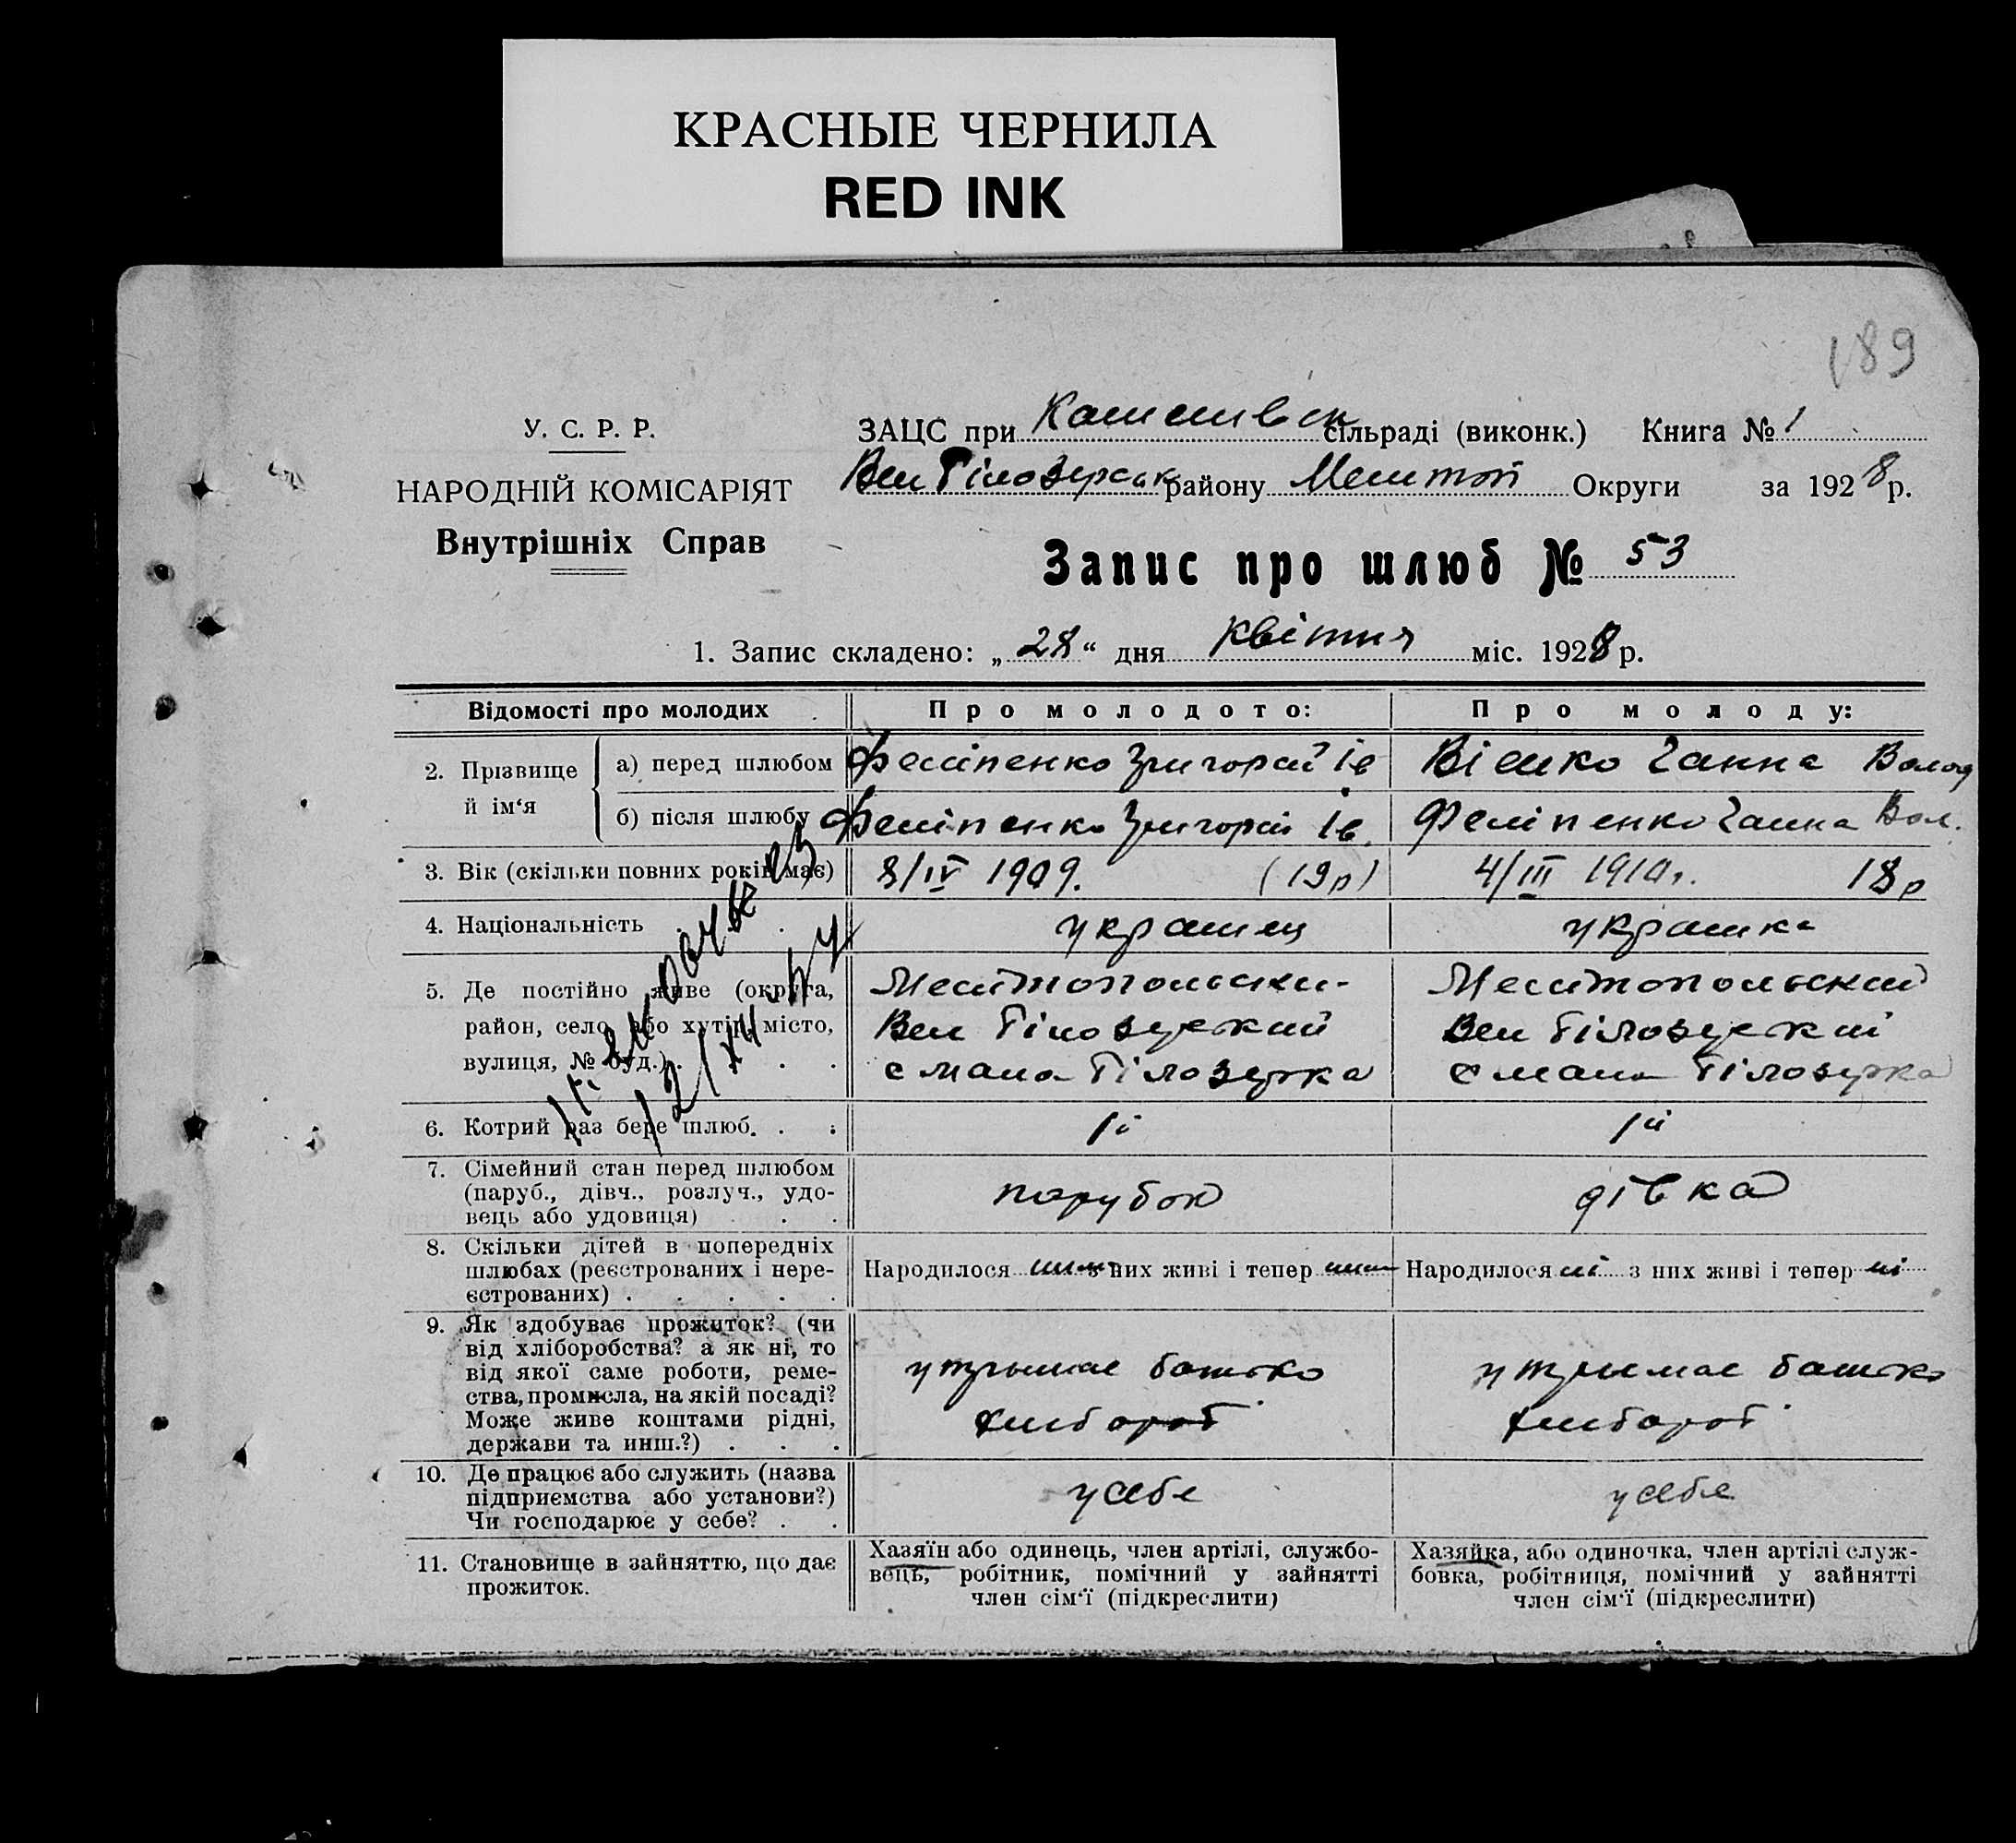 КРАСНЫЕ ЧЕРНИЛА
RED INK
189
У. С. Р. Р.
НАРОДНІЙ КОМІСАРІЯТ
Внутрішніх Справ
ЗАЦС при сільраді (виконк.) Книга № 1
Вел Білозерськ району Мелитоп Округи за 1928 р.
Запис про шлюб № 53
1. Запис складено: „28“ дня Квітня міс. 1928 р.
Відомості про молодих Про молодого: Про молоду:
2. Прізвище й ім‘я
а) перед шлюбом Феліпенко Григорій Ів Ганна Волод
б) після шлюбу Феліпенко Григорій Ів. Феліпенко Ганна Вол.
3. Вік (скільки повних років має) 8/IV 1909. (19р) 4/III 1910р. 18р
4. Національність українец українка
5. Де постійно живе (округа, район, село або хутір, місто, вулиця, № буд.)
Мелитопольски- Мелитопольский
Вел Білозерский Вел Білозерский
с мала Білозерка с мала Білозерка
6. Котрий раз бере шлюб. 1й 1й
7. Сімейний стан перед шлюбом
(паруб., дівч., розлуч., удо-
вець або удовиця)
парубок дівка
8. Скільки дітей в попередніх
шлюбах (реєстрованих і нере-
єстрованих)
Народилося з них живі і тепер Народилося ні з них живі і тепер ні
9. Як здобуває прожиток? (чи
від хліборобства? а як ні, то
від якої саме роботи, реме-
ства, промисла, на якій посаді?
Може живе коштами рідні,
держави та инш.?)
утрымае батько утрымае батько
хлібороб хлібороб
10. Де працює або служить (назва
підприємства або установи?)
Чи господарює у себе?
у себе у себе
11. Становище в зайняттю, що дає
прожиток.
Хазяїн або одинець, член артілі, службо-
вець, робітник, помічний у зайнятті
член сім‘ї (підкреслити)
Хазяйка, або одиночка, член артілі служ-
бовка, робітниця, помічний у зайнятті
член сім‘ї (підкреслити)